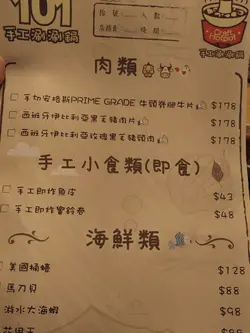 101
手工涮涮鍋
Craft
Hotpot
手工涮涮鍋
肉類
手切安格斯PRIME GRADE 牛頸脊腿牛片 $178
西班牙伊比利亞黑毛豬肉片 $178
西班牙伊比利亞玫瑰黑毛豬頸肉 $178
手工小食類(即食)
手工即炸魚皮 $43
手工即炸響鈴卷 $48
海鮮類
美國桶蠔 $128
馬刀貝 $88
游水大海蝦 $98